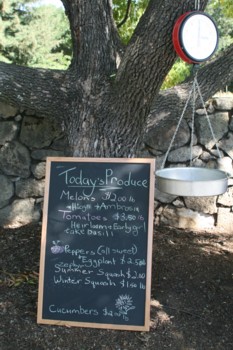 Today's Produce
Melons $2.00 lb
+ Ambrosia
Tomatoes $3.50 lb
Heirloom + Early girl
Peppers (all sweet)
Eggplant $2.50
Summer Squash $2.00
Winter Squash $1.50 lb
Cucumbers